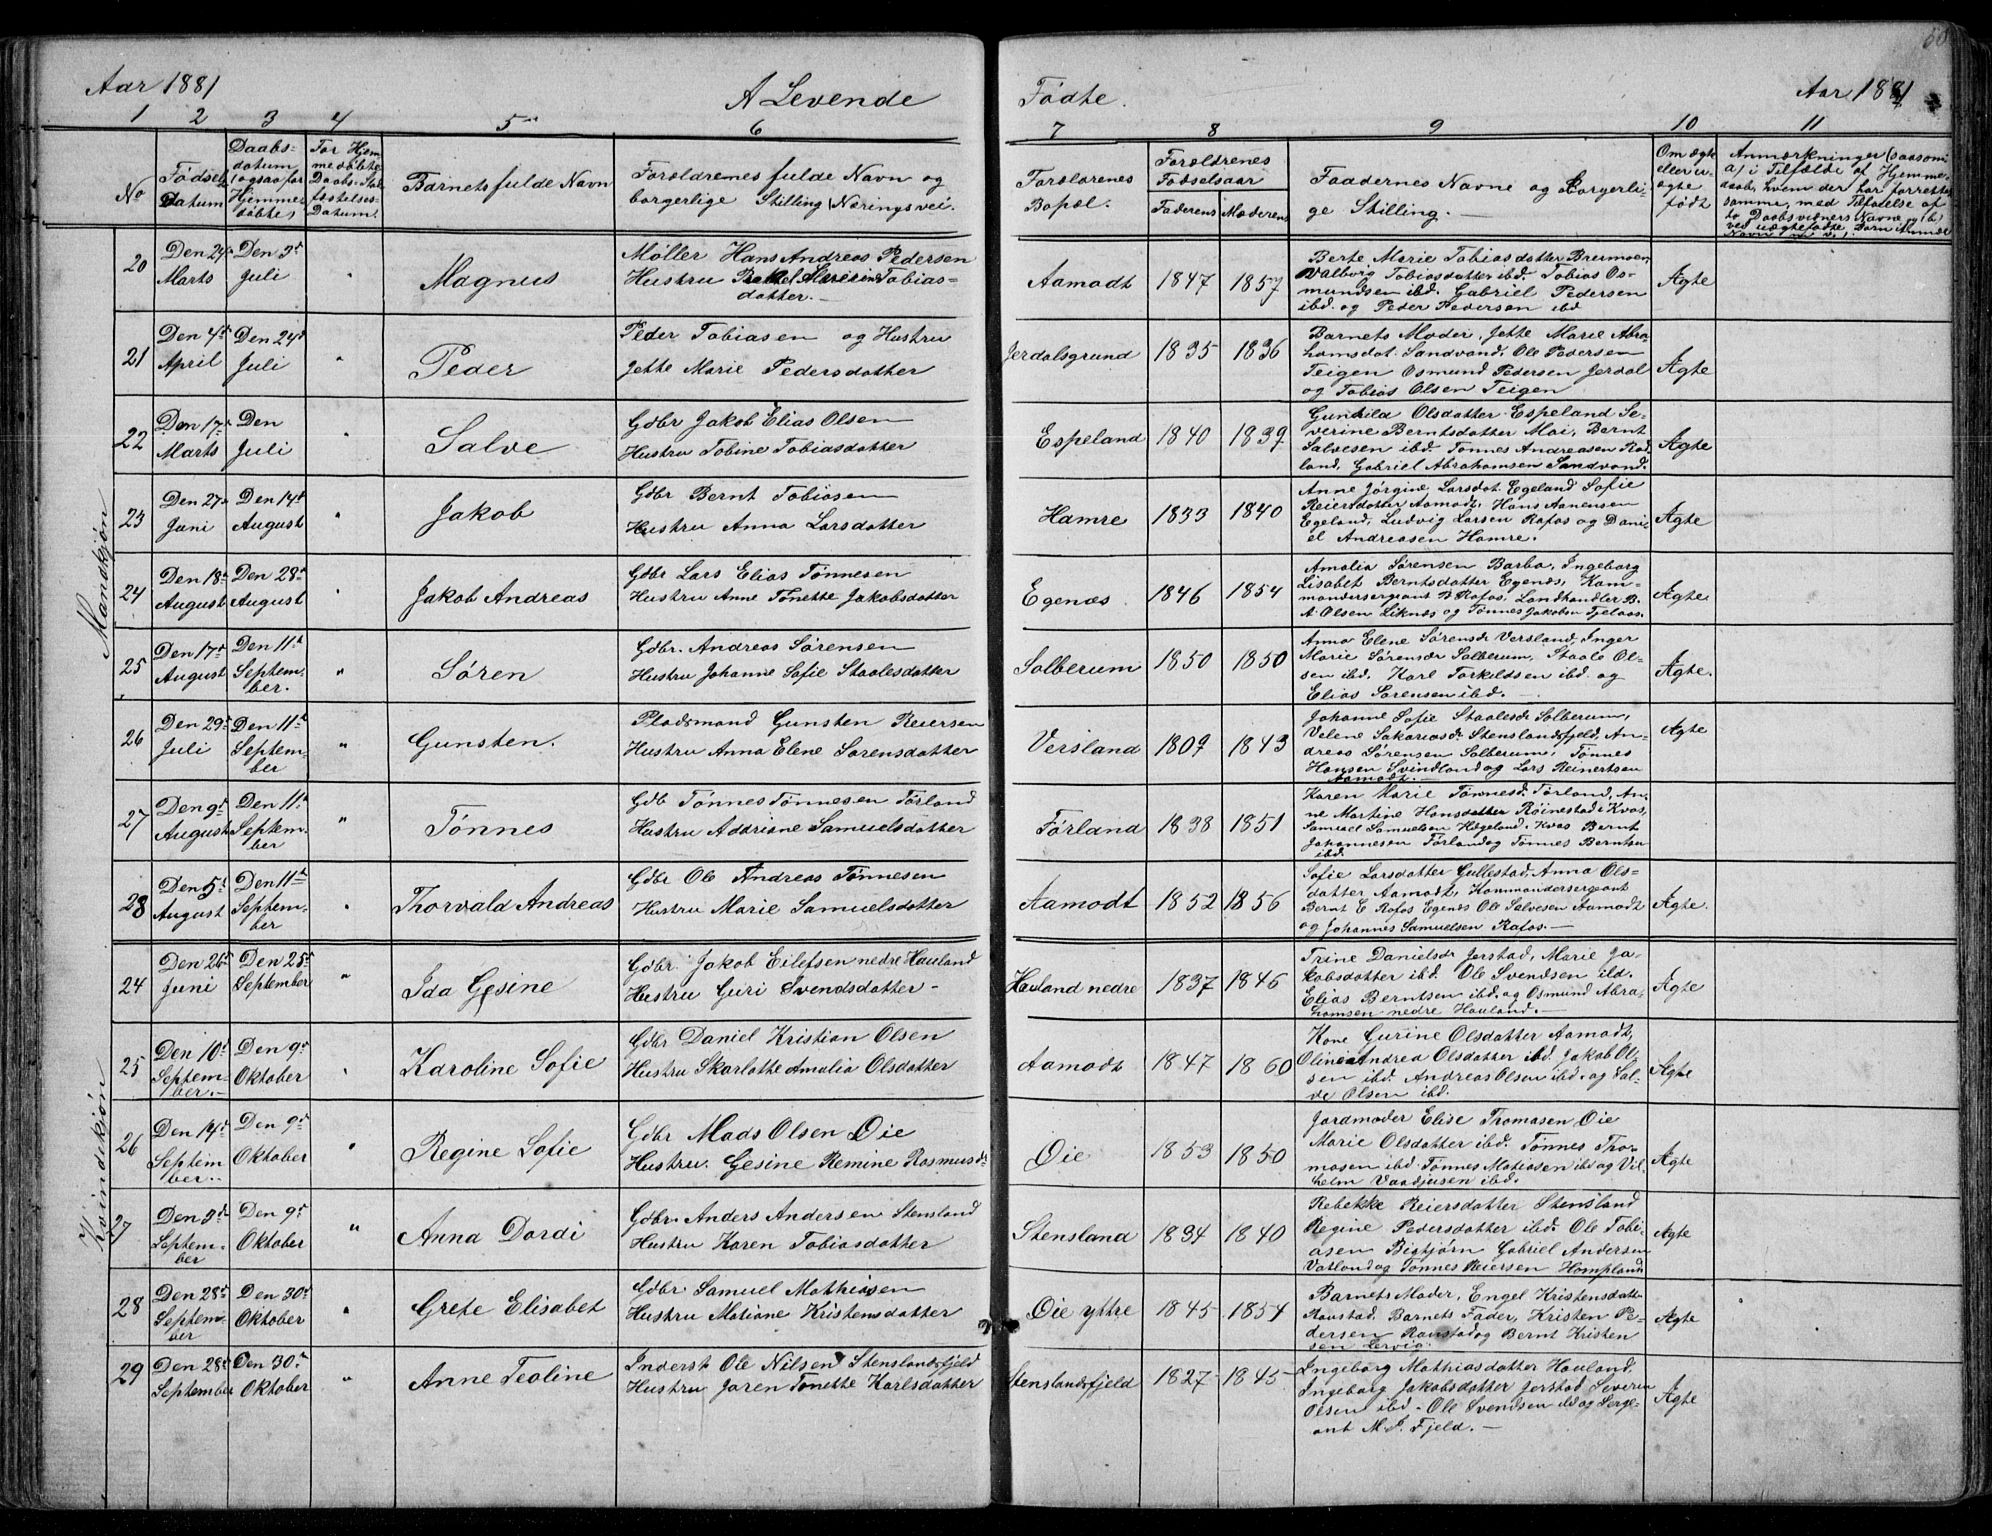 50
Aar 1881
A Levende
Fødte.
Aar 1881
1 2 3 4 5 6 7 8 9 10 11
No
Fødsels Datum
Daabs-
datum
(ogsaa for
Hjemme-
døbte)
For Hjem
medøbte
Daabs-Stad
festelses-
Datum.
Barnets fulde Navn
Forældrenes fulde Navn og
borgerlige Stilling (Næringsvei.
Forældrenes
Bopæl.
Forældrenes
Fødselsaar
Faderens Moderens
Faddernes Navne og Borgerli-
ge Stilling.
Om ægte
eller u-
ægte
født
Anmærkninger (saasom
a) i Tilfælde af Hjemme-
daab, hvem der har forrettet
samme, med Tilføielse af
Daabsvidners Navne, b)
ved uægtefødte Børn
Mandkjøn
20 Den 24 Marts
Den 3d Juli
"
Magnus
Møller Hans Andreas Pedersen
Hustru Tobias-
datter.
Aamodt
1847 1857
Berte Marie Tobiasdatter Bremoen
Valbvig Tobiasdatter ibd. Tobias Os-
mundsen ibd. Gabriel Pedersen
ibd. og Peder Pedersen ibd
Ægte
21 Den 4d April
Den 24d Juli
"
Peder
Peder Tobiasen og Hustru
Jette Marie Pedersdatter
Jerdalsgrund
1835 1836
Barnets Moder, Jette Marie Abra
hamsdat. Sandvand, Ole Pedersen
Teigen Osmund Pedersen Jerdal
og Tobias Olsen Teigen
Ægte
22 Den 17d Marts
Den Juli
"
Salve
Gdbr Jakob Elias Olsen
Hustru Tobine Tobiasdatter
Espeland
1840 1839
Gunhild Olsdatter Espeland Se-
verine Berntsdatter Moi, Bernt
Salvesen ibd. Tønnes Andreasen Rød
land, Gabriel Abrahamsen Sandvand.
Ægte
23 Den 27d Juni
Den 14d August
"
Jakob
Gdbr Bernt Tobiasen
Hustru Anna Larsdatter
Hamre
1833 1840
Anne Jørgine Larsdat. Egeland Sofie
Reiersdatter Aamodt, Hans Aanensen
Egeland, Ludvig Larsen Rafos og Dani-
el Andreasen Hamre.
Ægte
24 Den 18d August
Den 28d August
"
Jakob Andreas
Gdbr Lars Elias Tønnesen
Hustru Anne Tonette Jakobsdatter
Egenæs
1846 1854
Amalia Sørensen Barbo, Ingeborg
Lisabet Berntsdatter Egenæs, Kom-
mandersergeant B. Rafos, Landhandler B.
A. Olsen Liknæs og Tønnes Jakobsen Fjelaas.
Ægte
25 Den 17d August
Den 11d September.
"
Søren
Gdbr. Andreas Sørensen
Hustru Johanne Sofie Staalesdatter
Solberum
1850 1850
Anna Elene Sørensdr Versland, Inger
Marie Sørensdr Solberum, Staale Ol-
sen ibd. Karl Torkildsen ibd og
Elias Sørensen ibd.
Ægte.
26 Den 29d Juli
Den 11d September
"
Gunsten.
Pladsmand Gunsten Reiersen
Hustru Anna Elene Sørensdatter
Versland
1809 1843
Johanne Sofie Staalesdr Solberum,
Velene Sakariasdr. Stenslandsfjeld, An-
dreas Sørensen Solberum, Tønnes
Hansen Svindland og Lars Reinertsen
Aamodt.
Ægte
27 Den 9d August
Den 11d September
"
Tønnes
Gdb Tønnes Tønnesen Førland
Hustru Addriane Samuelsdatter
Førland
1838 1851
Karen Marie Tønnesd. Førland, An-
ne Martine Hansdatter Røinestad i Kvas,
Samuel Samuelsen Hægeland i Kvas Bernt
Johannesen Førland og Tønnes Berntsen
ibd.
28 Den 5d August
Den 11d September
"
Thorvald Andreas
Gdbr Ole Andreas Tønnesen
Hustru Marie Samuelsdatter
Aamodt
1852 1856
Sofie Larsdatter Gullestad, Anna Ols-
datter Aamodt, Kommandersergeant
Bernt E Rafos Egenæs Ole Salvesen Aamodt
og Johannes Samuelsen Rafos.
Ægte.
Kvindekjøn
24 Den 26d Juni
Den 25d September
"
Ida Gesine
Gdbr. Jakob Eilefsen nedre Hauland
Hustru Guri Svendsdatter
Hauland nedre
1837 1846
Trine Danielsdr Jerstad, Marie Ja-
kobsdatter ibd. Ole Svendsen ibd.
Elias Berntsen ibd. og Osmund Abra-
hamsen nedre Hauland.
Ægte
25 Den 10d September.
Den 9d Oktober
"
Karoline Sofie
Gdbr Daniel Kristian Olsen
Hustru Skarlotte Amalia Olsdatter
Aamodt
1847 1860
Kone Gurine Olsdatter Aamodt,
Oline Andrea Olsdatter ibd. Jakob Ol-
sen ibd. Andreas Olsen ibd. og Sal-
ve Olsen ibd.
Ægte
26 Den 14d September.
Den 9d Oktober
"
Regine Sofie
Gdbr Mads Olsen Øie
Hustru. Gesine Remine Rasmusd.
Øie
1853 1850
Jordmoder Elise Tromasen Øie
Marie Olsdatter ibd. Tønnes Tho-
masen ibd. Tønnes Matiasen ibd og Vil-
helm ibd.
Ægte
27 Den 3d September
Den 9d Oktober
"
Anna Dordi
Gdbr. Anders Andersen Stensland
Hustru Karen Tobiasdatter
Stensland
1834 1840
Rebekke Reiersdatter Stensland
Regine Pedersdatter ibd. Ole Tobi-
asen Bigtjørn Gabriel Andersen
Vatland og Tønnes Reiersen Hompland
Ægte
28 Den 28d September
Den 30d Oktober
"
Grete Elisabet
Gdbr. Samuel Mathiasen
Hustru Matiane Kristensdatter
Øie yttre
1845 1854
Barnets Moder, Engel Kristensdatt.
Raustad, Barnets Fader, Kristen Pe-
dersen Raustad og Bernt Kristen
sen Lervig.
Ægte
29 Den 28d September
Den 30d Oktober
"
Anne Teoline
Inderst Ole Nilsen Stenslandsfjeld
Hustru Jaren Tonette Karlsdatter
Stenslandsfjeld
1827 1845
Ingeborg Mathiasdatter Hauland,
Ingeborg Jakobsdatter Jerstad Severin
Olsen ibd. Ole Svendsen ibd og Serge-
ant M. J. Fjeld.
Ægte